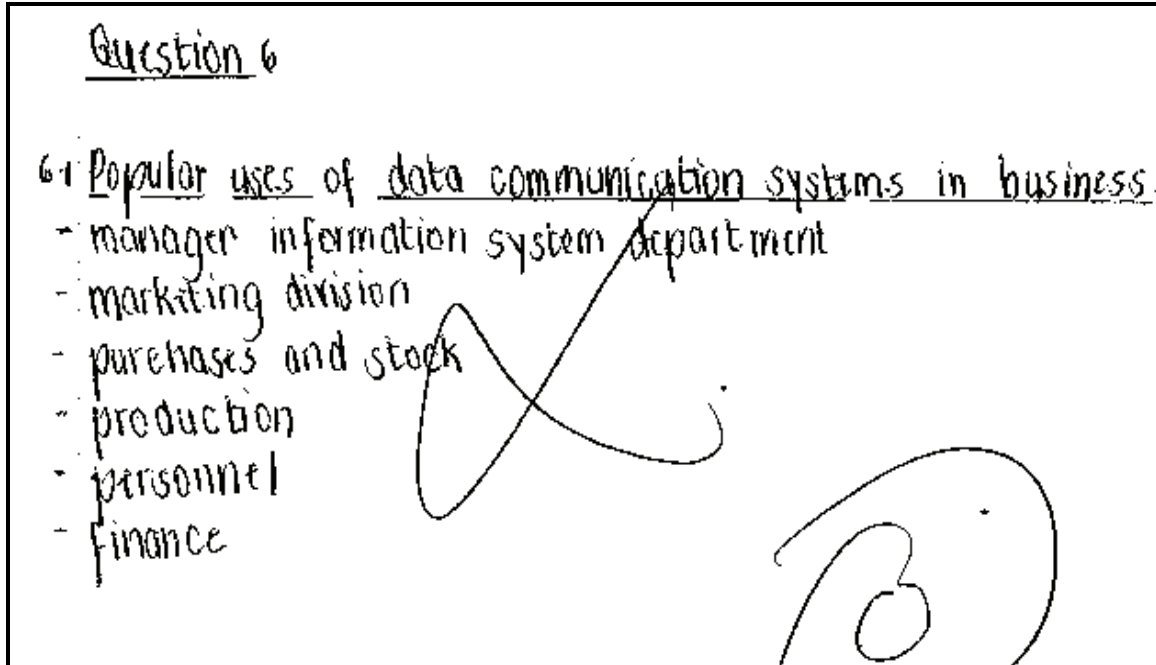 Question 6
6.1 Popular uses of data communication systems in business.
- manager information system department
- markiting division
- purchases and stock
- production
- personnel
- finance